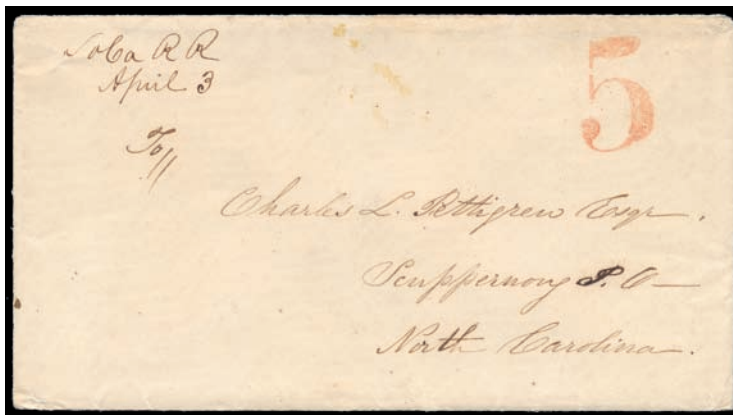 So Ca R R
April 3
5
To//
Charles L. Pettigrew Esqr.
Scuppernong P. O—
North Carolina.